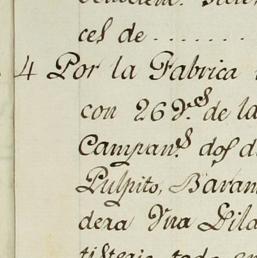 ces de . . . . . . .
4 Por la Fabrica
con 26 qs. de la
Campans. dos d
Pulpito, Baran
dera Una Pila